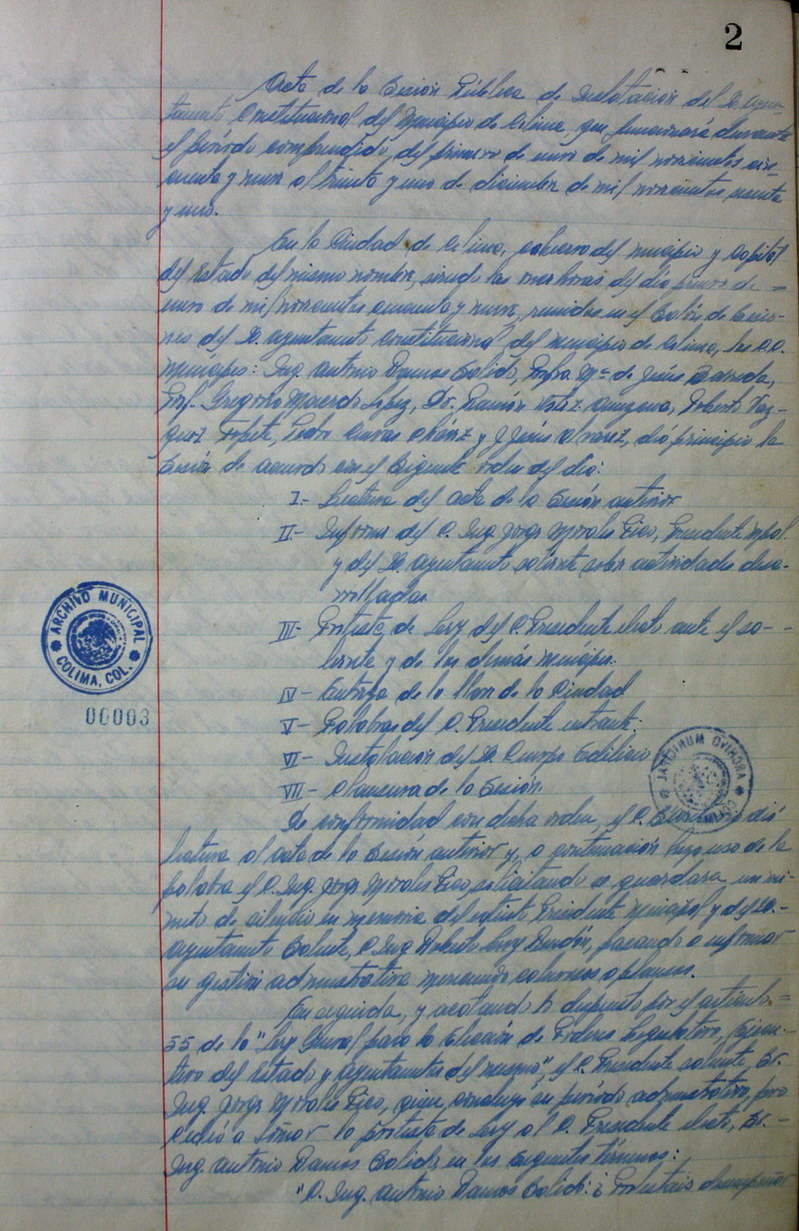 2
Acta de la Sesión Pública de Instalación del H. Ayun-
tamiento Constitucional del Municipio de Colima, que funcionará durante
el período comprendido, del primero de enero de mil novecientos cin-
cuenta y nueve al treinta y uno de diciembre de mil novecientos sesenta
y uno.
En la Ciudad de Colima, cabecera del municipio y Capital
del Estado del mismo nombre, siendo las horas del día primero de =
enero de mil novecientos cincuenta y nueve, reunidos en el Salón de Sesio-
nes del H. Ayuntamiento Constitucional del municipio de Colima, los C.C.
Munícipes: Ing. Antonio Ramos Salido, Profra. Ma. de Jesús Barreda,
Prof. Gregorio Macedo López, Dr. Ramón Vélez Roberto Váz-
quez Topete, Pedro Cuevas y J. Jesús Alvarez, dió principio la
Sesión de acuerdo con el siguiente orden del día:
I.- Lectura del acta de la Sesión anterior
II.- Informe del C. Ing. Jorge Morales Rico, Presidente Mpal.
y del H. Ayuntamiento saliente sobre actividades desa-
rrolladas.
III- Protesta de Ley del C. Presidente electo ante el sa--
liente y de los demás munícipes.
IV- Entrega de la llave de la Ciudad
V- Palabras del C. Presidente entrante.
VI- Instalación del H. Cuerpo Edilicio
VII- Clausura de la Sesión.
De conformidad con dicha orden, el C. dió
lectura al acta de la Sesión anterior y, a continuación hizo uso de la
palabra el C. Ing. Jorge Morales Rico solicitando se guardara un mi-
nuto de silencio en memoria del extinto Presidente Municipal y del H.-
Ayuntamiento Saliente, C. Ing. Roberto Levy Rendón, pasando a informar
su gestión administrativa mereciendo calurosos aplausos.
En seguida, y acatando lo dispuesto por el artículo =
55 de la "Ley General para la Elección de Poderes Legislativo, Ejecu-
tivo del Estado y Ayuntamientos del mismo", el C. Presidente saliente, Sr.
Ing. Jorge Morales Rico, quien concluyó su período administrativo, pro
cedió a tomar la protesta de Ley al C. Presidente electo, Sr. -
Ing. Antonio Ramos Salido en los siguientes términos:
"C. Ing. Antonio Ramos Salido: ¿Protestais desempeñar
ARCHIVO MUNICIPAL
COLIMA, COL.
00003
ARCHIVO MUNICIPAL
COLIMA